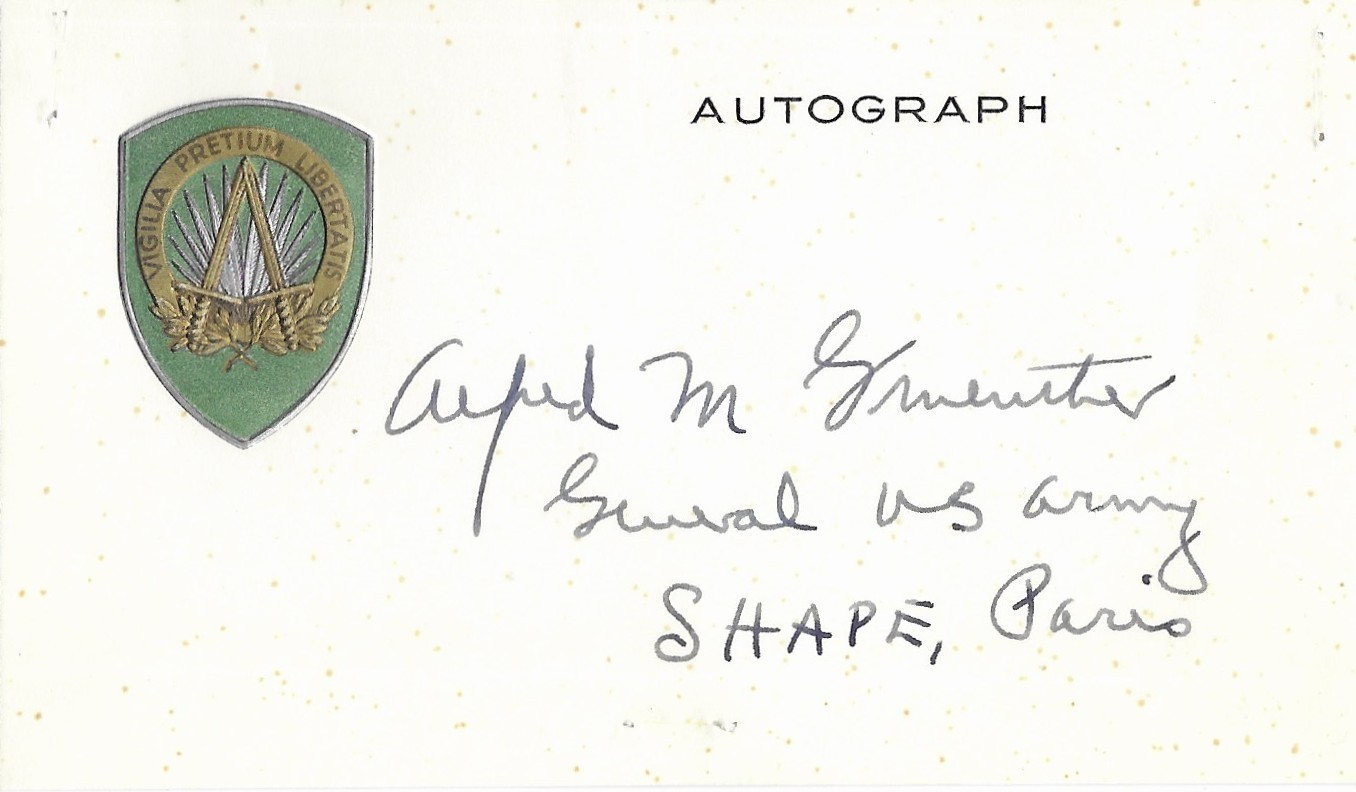 AUTOGRAPH
VIGILIA PRETIUM LIBERTATIS
Alfred M Gruenther
General US Army
SHAPE, Paris